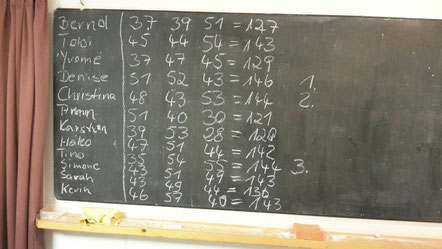 Bernd 37 39 51 = 127
Tobi 45 44 54 = 143
Yvonne 37 47 45 = 129
Denise 51 52 43 = 146 1.
Christina 48 43 53 = 144 2.
Armin 51 40 30 = 121
Karsten 39 53 28 = 120
Heiko 47 51 44 = 142
Tino 35 54 55 = 144 3.
Simone 43 51 49 = 143
Sarah 43 49 44 = 136
Kevin 46 57 40 = 143